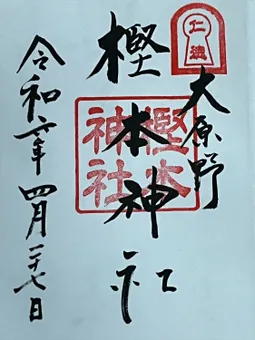 大原野
樫本神社
令和六年四月二十七日
仁徳
樫本
神社